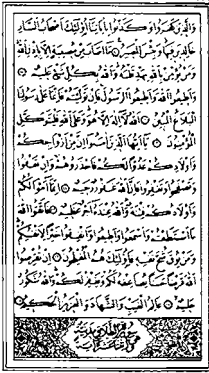 وَالَّذِينَ كَفَرُوا وَكَذَّبُوا بِآيَاتِنَا أُولَٰئِكَ أَصْحَابُ النَّارِ
خَالِدِينَ فِيهَا وَبِئْسَ الْمَصِيرُ مَا أَصَابَ مِنْ مُصِيبَةٍ إِلَّا بِإِذْنِ اللَّهِ
وَمَنْ يُؤْمِنْ بِاللَّهِ يَهْدِ قَلْبَهُ وَاللَّهُ بِكُلِّ شَيْءٍ عَلِيمٌ
وَأَطِيعُوا اللَّهَ وَأَطِيعُوا الرَّسُولَ فَإِنْ تَوَلَّيْتُمْ فَإِنَّمَا عَلَىٰ رَسُولِنَا
الْبَلَاغُ الْمُبِينُ اللَّهُ لَا إِلَٰهَ إِلَّا هُوَ وَعَلَى اللَّهِ فَلْيَتَوَكَّلِ
الْمُؤْمِنُونَ يَا أَيُّهَا الَّذِينَ آمَنُوا إِنَّ مِنْ أَزْوَاجِكُمْ
وَأَوْلَادِكُمْ عَدُوًّا لَكُمْ فَاحْذَرُوهُمْ وَإِنْ تَعْفُوا
وَتَصْفَحُوا وَتَغْفِرُوا فَإِنَّ اللَّهَ غَفُورٌ رَحِيمٌ إِنَّمَا أَمْوَالُكُمْ
وَأَوْلَادُكُمْ فِتْنَةٌ وَاللَّهُ عِنْدَهُ أَجْرٌ عَظِيمٌ فَاتَّقُوا اللَّهَ
مَا اسْتَطَعْتُمْ وَاسْمَعُوا وَأَطِيعُوا وَأَنْفِقُوا خَيْرًا لِأَنْفُسِكُمْ
وَمَنْ يُوقَ شُحَّ نَفْسِهِ فَأُولَٰئِكَ هُمُ الْمُفْلِحُونَ إِنْ تُقْرِضُوا
اللَّهَ قَرْضًا حَسَنًا يُضَاعِفْهُ لَكُمْ وَيَغْفِرْ لَكُمْ وَاللَّهُ شَكُورٌ
حَلِيمٌ عَالِمُ الْغَيْبِ وَالشَّهَادَةِ الْعَزِيزُ الْحَكِيمُ